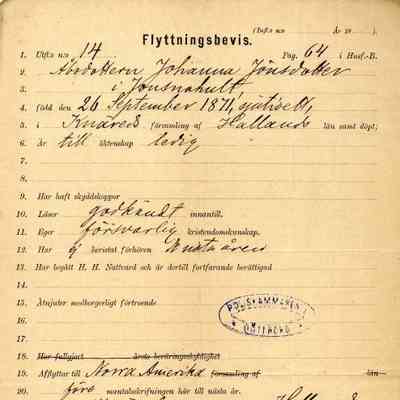 (Inft.s n:o År 18 ).
Flyttningsbevis.
1. Utft.s n:o 14 Pag. 64 i Husf.-B.
2. Åbodottern Johanna Jönsdotter
3. i Jonsnahult,
4. född den 26 September 1871, sjutioett,
5. i Knäreds församling af Hallands län samt döpt;
6. Är till äktenskap ledig
7.
8.
9. Har haft skyddskoppor
10. Läser godkändt innantill.
11. Eger försvarlig kristendomskunskap.
12. Har ej bevistat förhören
13. Har begått H. H. Nattvard och är dertill fortfarande berättigad
14.
15. Åtnjuter medborgerligt förtroende
16.
17.
POLISKAMMAREN I
GÖTEBORG
18. Har fullgjort årets beväringsskyldighet
19. Afflyttar till Norra Amerika församling af län
20. före mantalsskrifningen här till nästa år.